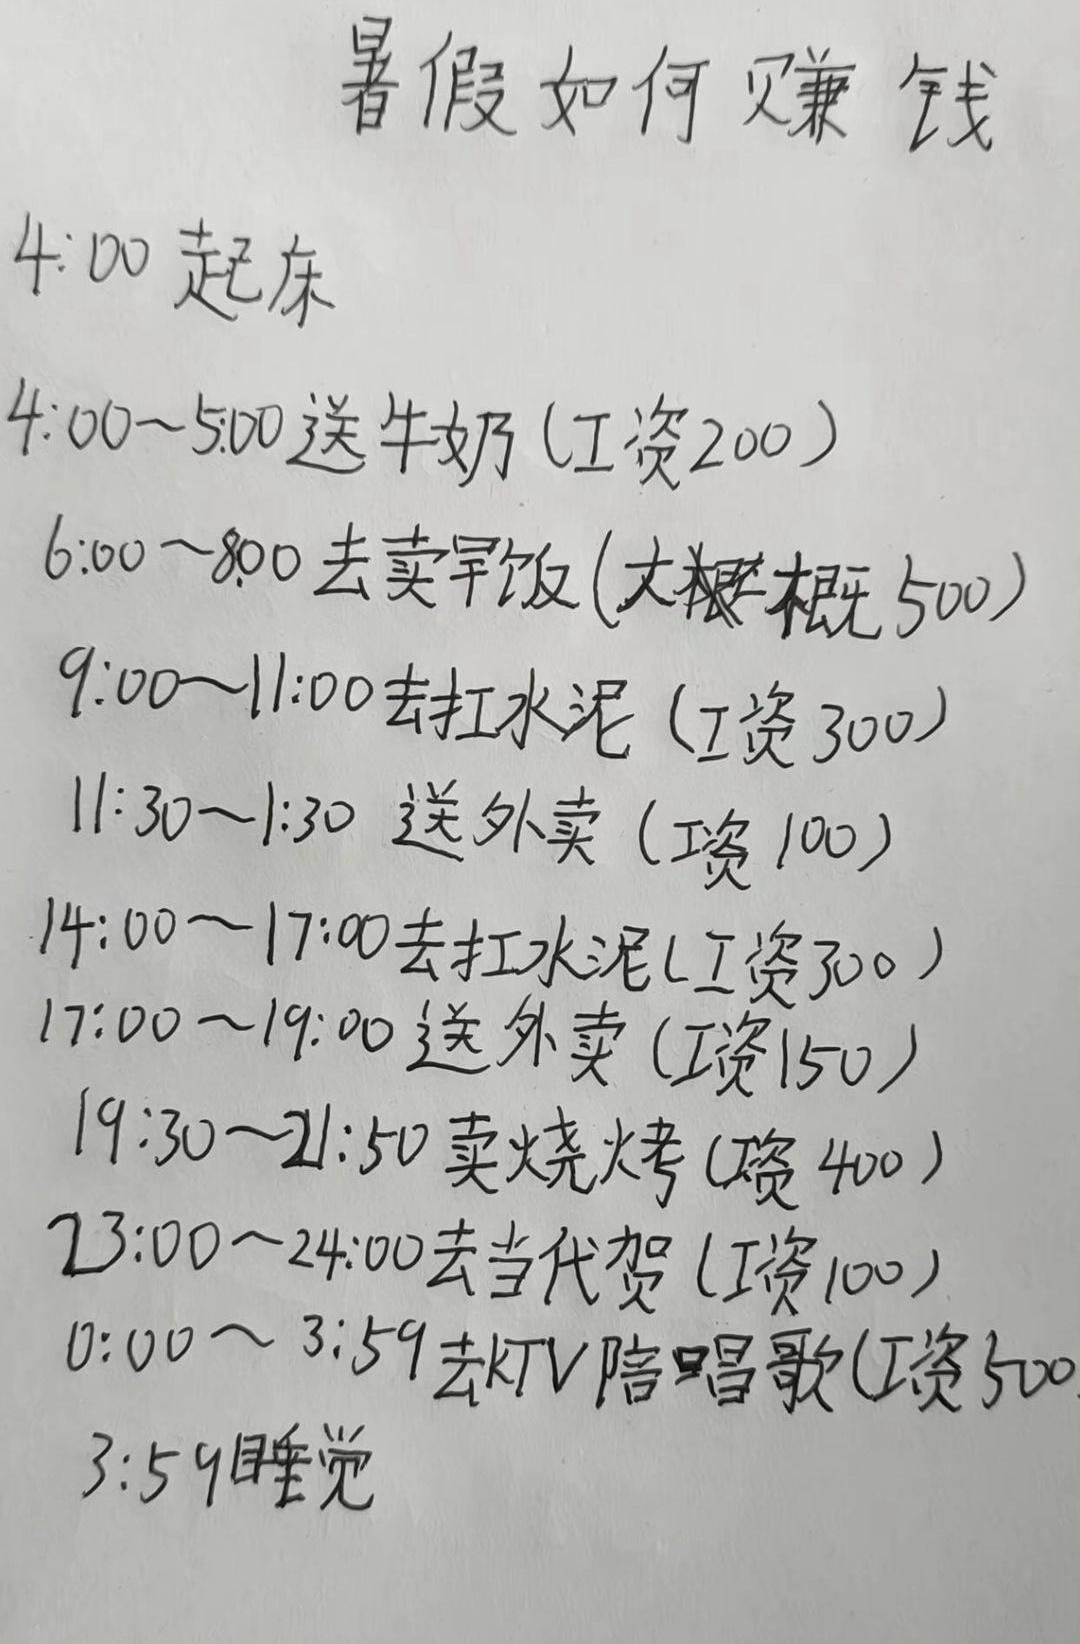 暑假如何赚钱
4:00 起床
4:00~5:00送牛奶(工资200)
6:00~8:00去卖早饭(大概500)
9:00~11:00去扛水泥(工资300)
11:30~1:30 送外卖(工资100)
14:00~17:00去扛水泥(工资300)
17:00~19:00送外卖(工资150)
19:30~21:50卖烧烤(工资400)
23:00~24:00去当代贺(工资100)
0:00~3:59去KTV陪唱歌(工资500
3:59睡觉